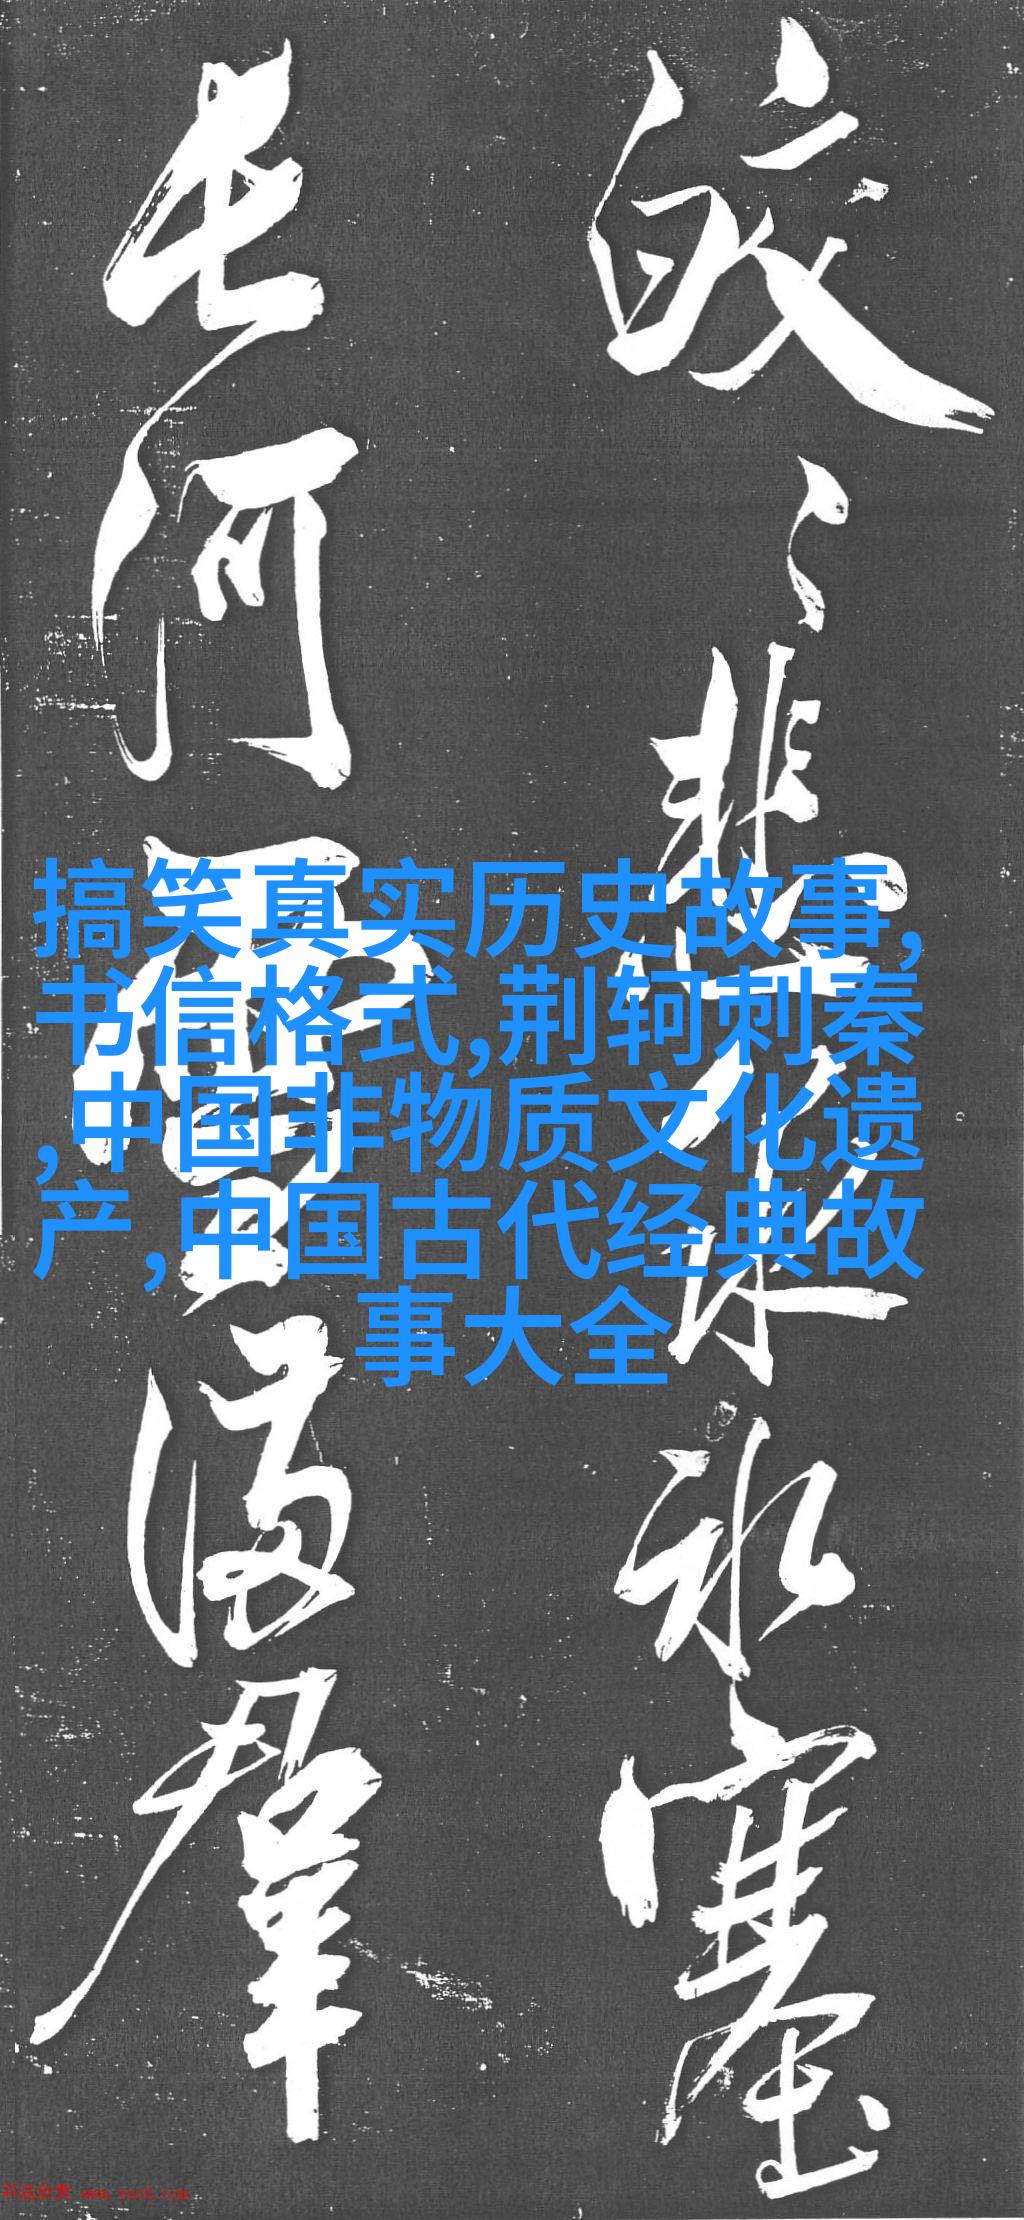 皎〻悲氷塞
長河雪滿羣
搞笑真实历史故事,
书信格式,荆轲刺秦
,中国非物质文化遗
产,中国古代经典故
事大全
书法欣赏 www.yac8.com